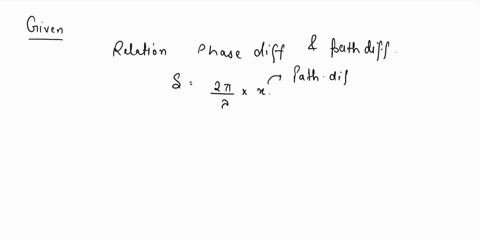 Given
Relation Phase diff & Path diff.
δ = 2π/λ * x. → Path. dif